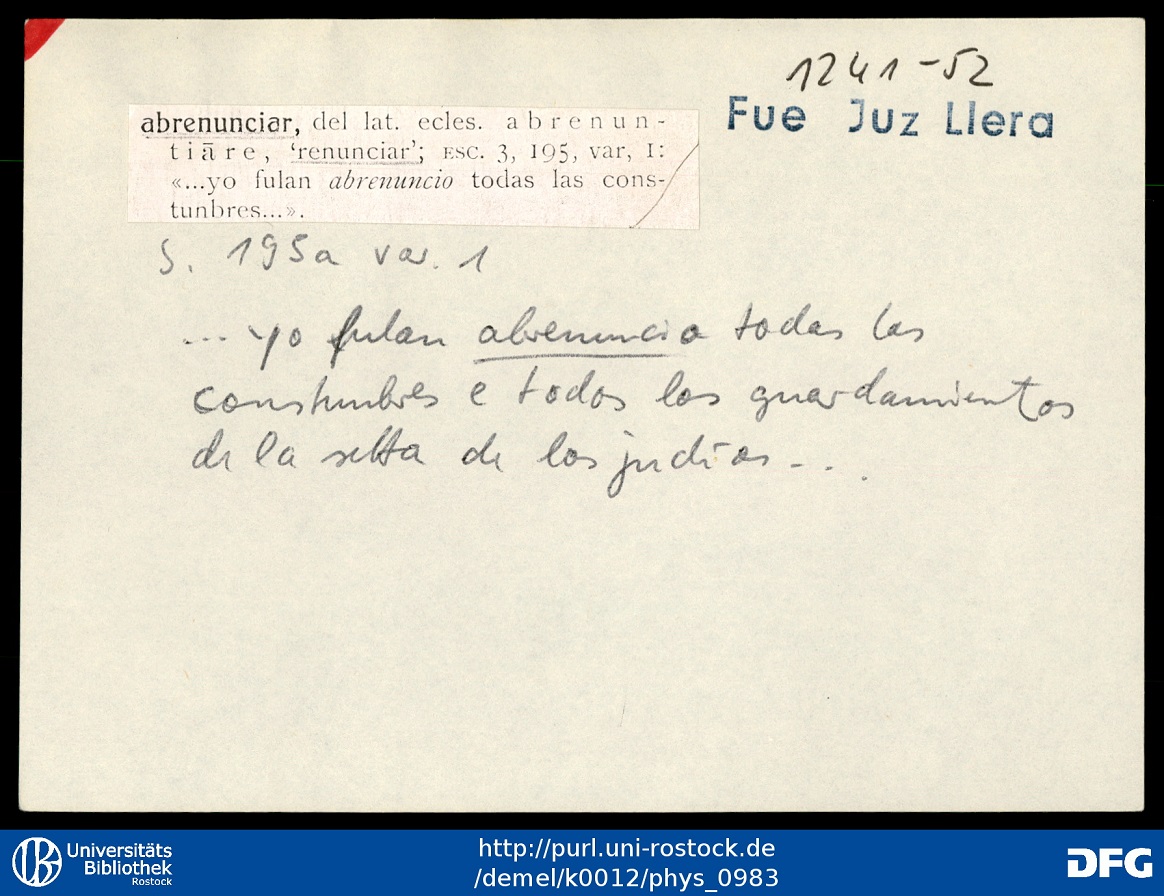 1241-52
Fue Juz Llera
abrenunciar, del lat. ecles. abrenun-
tiāre, ‘renunciar’; ESC. 3, 195, var, 1:
«...yo fulan abrenuncio todas las cons-
tunbres...».
S. 195a var. 1
... yo fulan abrenuncio todas las
constunbres e todos los guardamientos
de la setta de los judios...
Universitäts
Bibliothek
Rostock
http://purl.uni-rostock.de
/demel/k0012/phys_0983
DFG